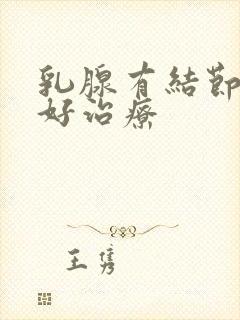 乳腺有結節
好治療
王雋